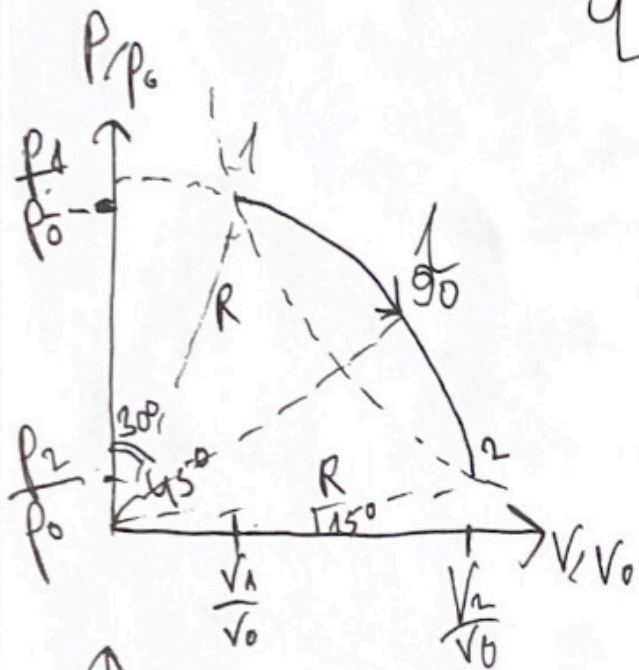 P/P₀
P1/P0
1
R
30°
45°
P2/P0
R
15°
2
V1/V0
V2/V0
V/V₀